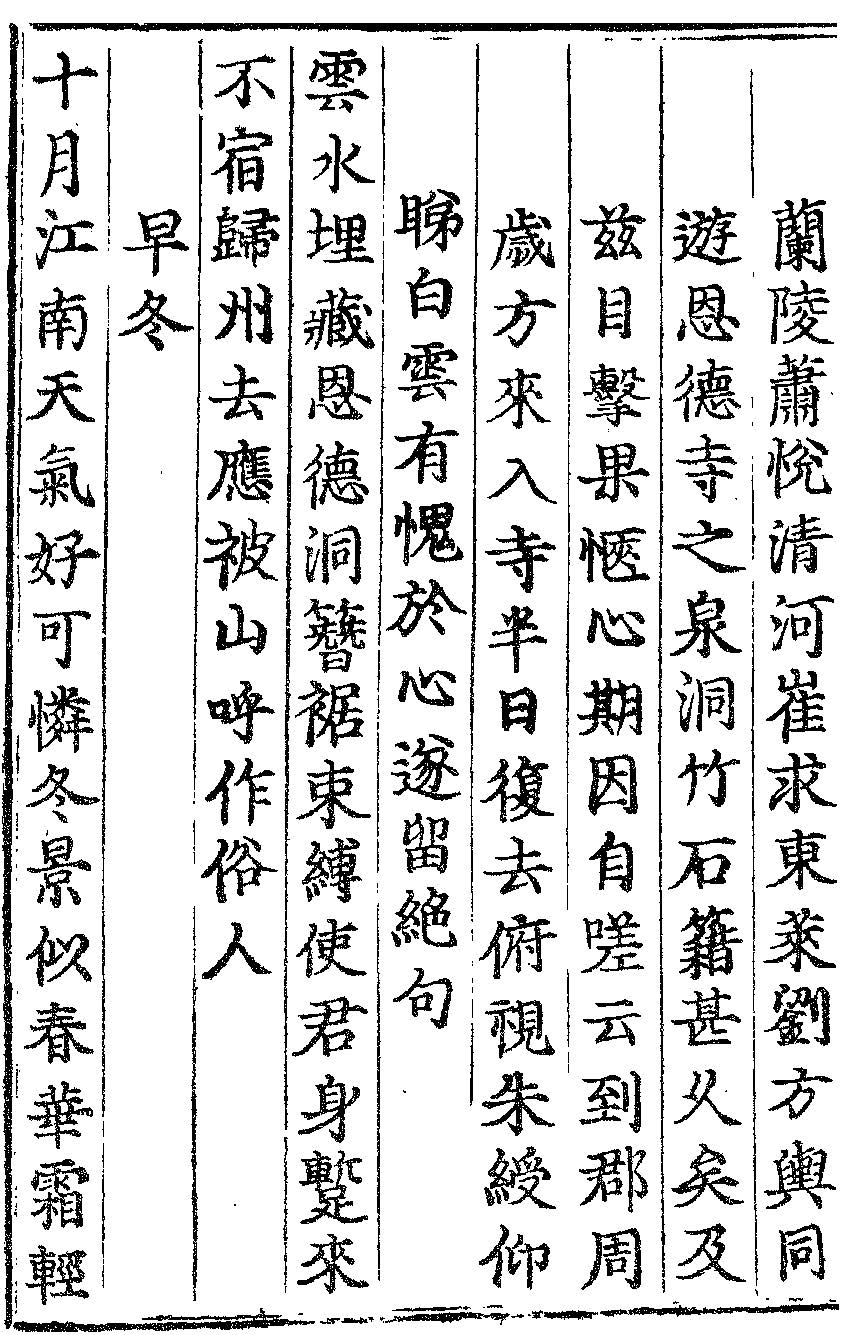 蘭陵蕭悅清河崔求東萊劉方輿同
遊恩德寺之泉洞竹石籍甚乆矣及
茲目擊果愜心期因自嗟云到郡周
歲方來入寺半日復去俯視朱綬仰
睇白雲有愧於心遂留絶句
雲水埋藏恩德洞簪裾束縛使君身蹔來
不宿歸州去應被山呼作俗人
早冬
十月江南天氣好可憐冬景似春華霜輕